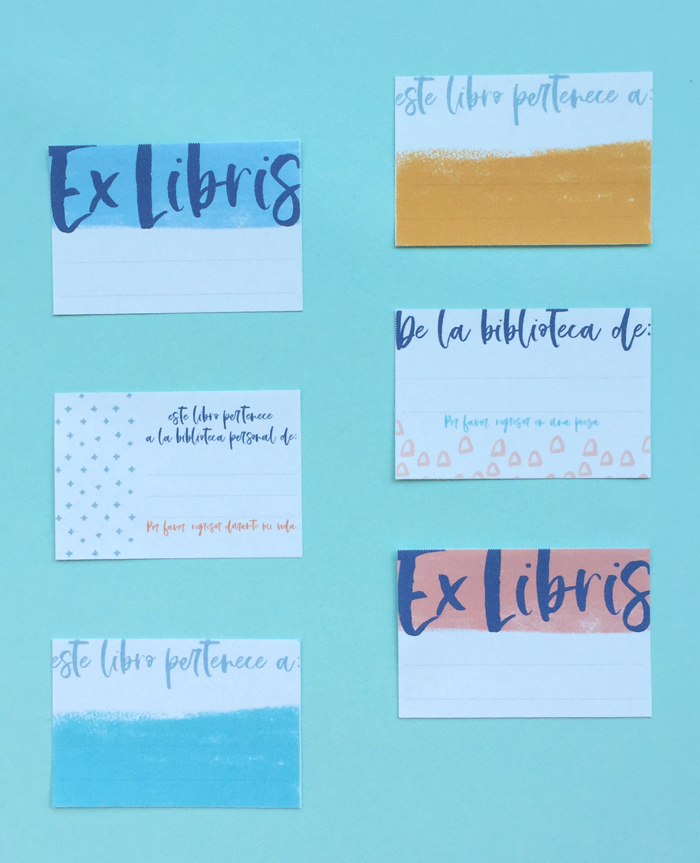 Ex Libris
este libro pertenece
a la biblioteca personal de:
Por favor, regresar durante mi vida.
este libro pertenece a:
este libro pertenece a:
De la biblioteca de:
Por favor, regresar en una pieza
Ex Libris